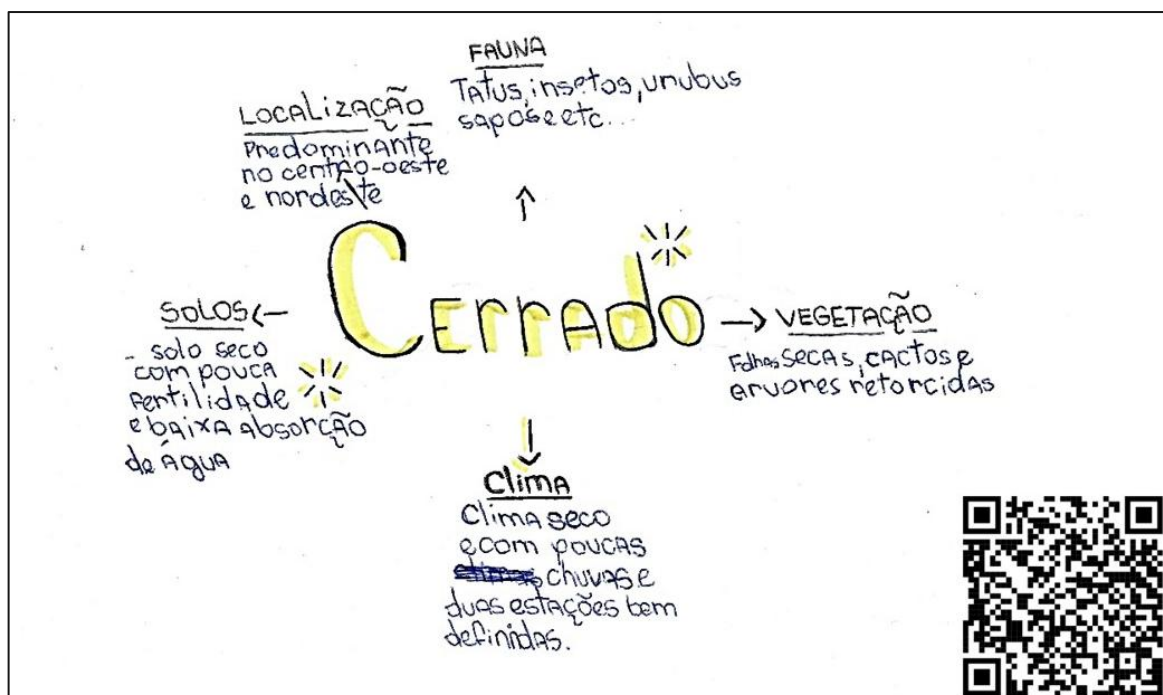 FAUNA
Tatus, insetos, urubus
sapos e etc...
LOCALIZAÇÃO
Predominante
no centro-oeste
e nordeste
CERRADO
SOLOS
- solo seco
com pouca
fertilidade
e baixa absorção
de água
VEGETAÇÃO
Folhas secas, cactos e
arvores retorcidas
Clima
Clima seco
e com poucas
chuvas e
duas estações bem
definidas.